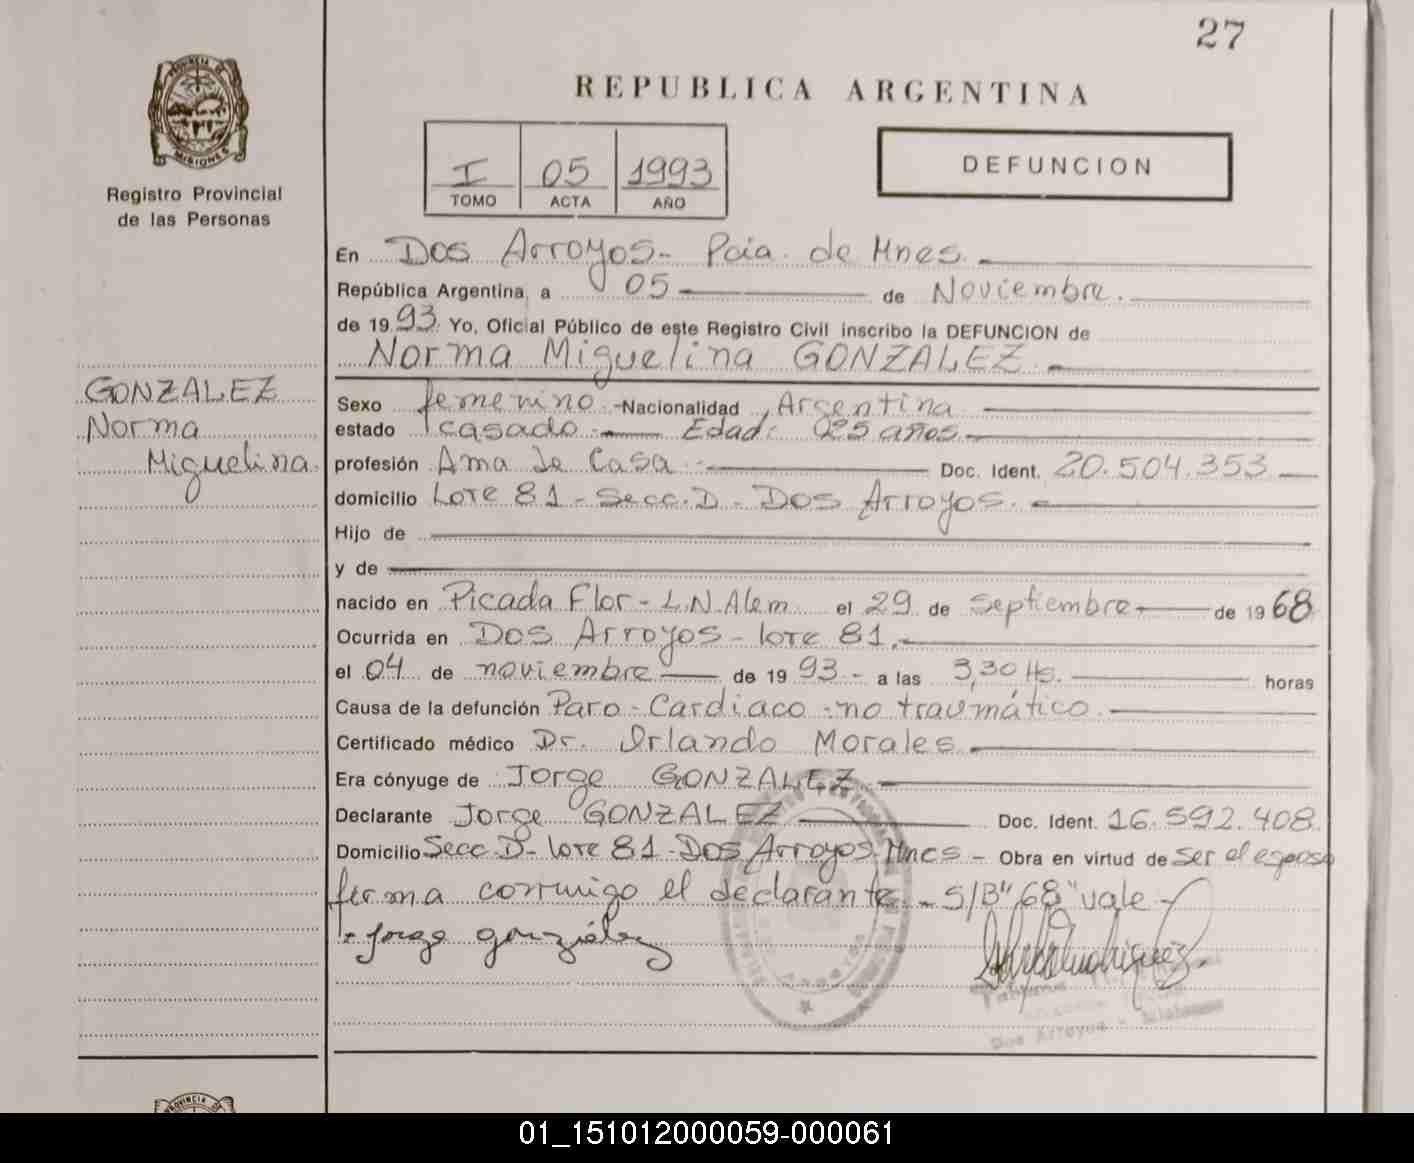 27
PROVINCIA DE
MISIONES
Registro Provincial
de las Personas
REPUBLICA ARGENTINA
I 05 1993
TOMO ACTA AÑO
DEFUNCION
En Dos Arroyos - Pcia. de Mnes.
República Argentina, a 05 de Noviembre.
de 1993. Yo, Oficial Público de este Registro Civil inscribo la DEFUNCION de
Norma Miguelina GONZALEZ.
GONZALEZ
Norma
Miguelina
Sexo femenino - Nacionalidad Argentina
estado casado. Edad: 025 años
profesión Ama de Casa - Doc. Ident. 20.504.353
domicilio Lote 81 - Secc. D - Dos Arroyos.
Hijo de
y de
nacido en Picada Flor - L.N.Alem el 29 de septiembre de 1968
Ocurrida en Dos Arroyos - lote 81.
el 04 de noviembre de 1993 - a las 3,30 Hs. horas
Causa de la defunción Paro - Cardiaco - no traumático.
Certificado médico Dr. Orlando Morales
Era cónyuge de Jorge GONZALEZ
Declarante Jorge GONZALEZ Doc. Ident. 16.592.408
Domicilio Secc. D - lote 81 - Dos Arroyos Mnes - Obra en virtud de ser el esposo
firma conmigo el declarante. - S/B "68" vale -
Jorge gonzález
Dos Arroyos - Misiones
PROVINCIA DE
01_151012000059-000061